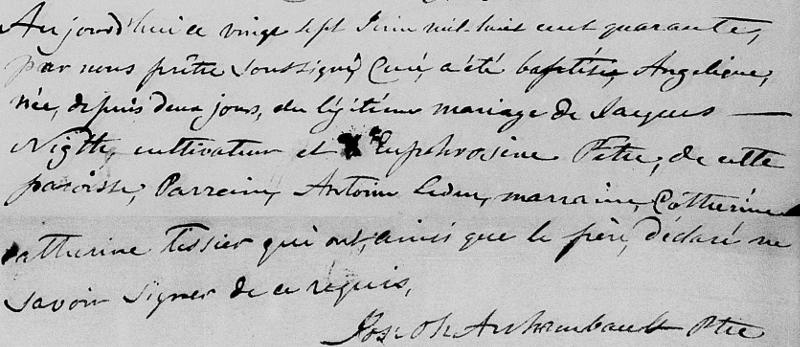 Aujourd'hui ce vingt sept Juin mil-huit cent quarante,
par nous prêtre soussigné, Curé, a été baptisée Angelique,
née, depuis deux jours, du légitime mariage de Jacques
cultivateur et Euphrosine Petre, de cette
paroisse, Parrain, Antoine marraine, Catherine
atherine Tessier qui ont, ainsi que le père, déclaré ne
savoir signer de ce réquis,
Joseph Archambault Ptre